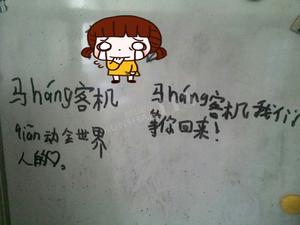 马háng客机
qiān动全世界
人的♡。
马háng客机我们
等你回来！